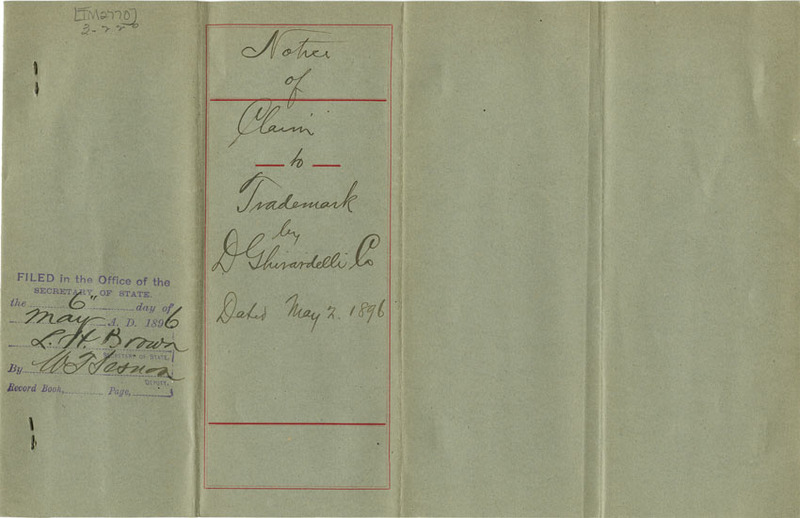 [TM2770]
3-22
Notice
of
Claim
to
Trademark
by
D Ghirardelli Co
Dated May 2. 1896
FILED in the Office of the
SECRETARY OF STATE.
the 6" day of
May A. D. 1896
L. H. Brown
SECRETARY OF STATE.
By
DEPUTY.
Record Book, Page,